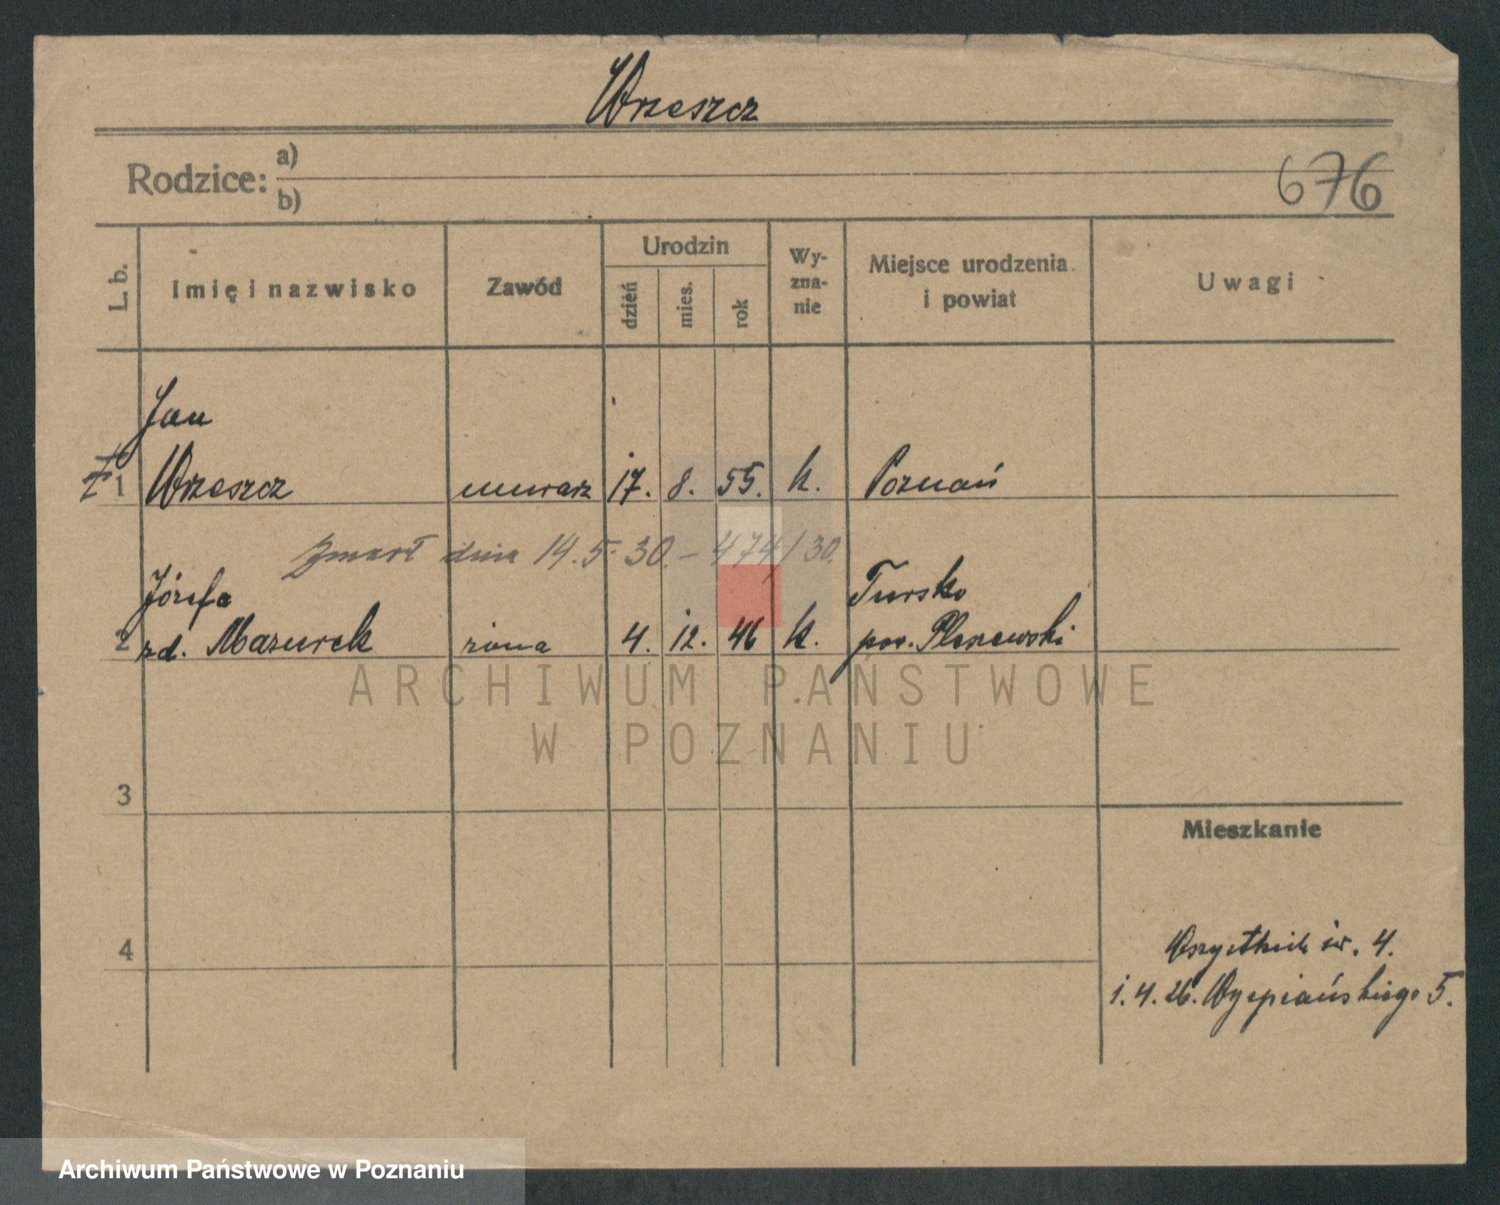 Wrzeszcz
Rodzice: a)
b)
676
L. b.
Imię i nazwisko
Zawód
Urodzin
dzień
mies.
rok
Wy-
zna-
nie
Miejsce urodzenia
i powiat
Uwagi
Jan
1 Wrzeszcz murarz 17. 8. 55. k. Poznań
Zmarł dnia 14.5.30. – 474/30.
Józefa Tursko
2 zd. Mazurek żona 4. 12. 46 k. pow. Pleszewski
ARCHIWUM PAŃSTWOWE
W POZNANIU
3
Mieszkanie
4
Wszystkich św. 4.
1.4.26. Wyspiańskiego 5.
Archiwum Państwowe w Poznaniu